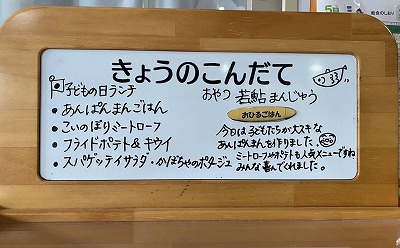 きょうのこんだて
子どもの日ランチ
・あんぱんまんごはん
・こいのぼりミートローフ
・フライドポテト&キウイ
・スパゲッティサラダ・かぼちゃのポタージュ
おやつ 若鮎まんじゅう
おひるごはん
今日は子どもたちが大スキな
あんぱんまんを作りました。
ミートローフやポテトも人気メニューですね
みんな喜んでくれました。